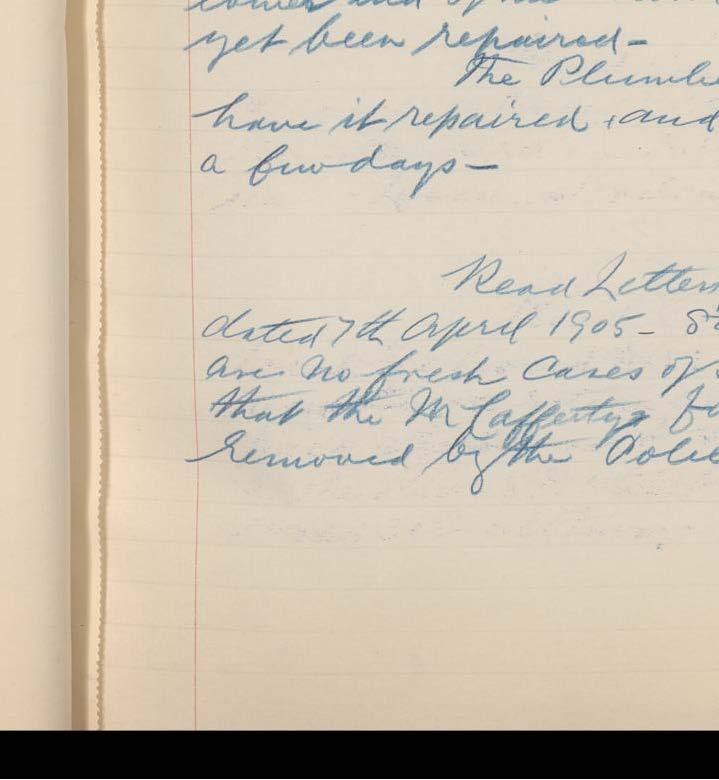 yet been repaired -
The Plumbe
have it repaired, and
a few days -
Read Letter
dated 7th April 1905 -
are no fresh cases of
that the McCaffertys
removed by the Polic